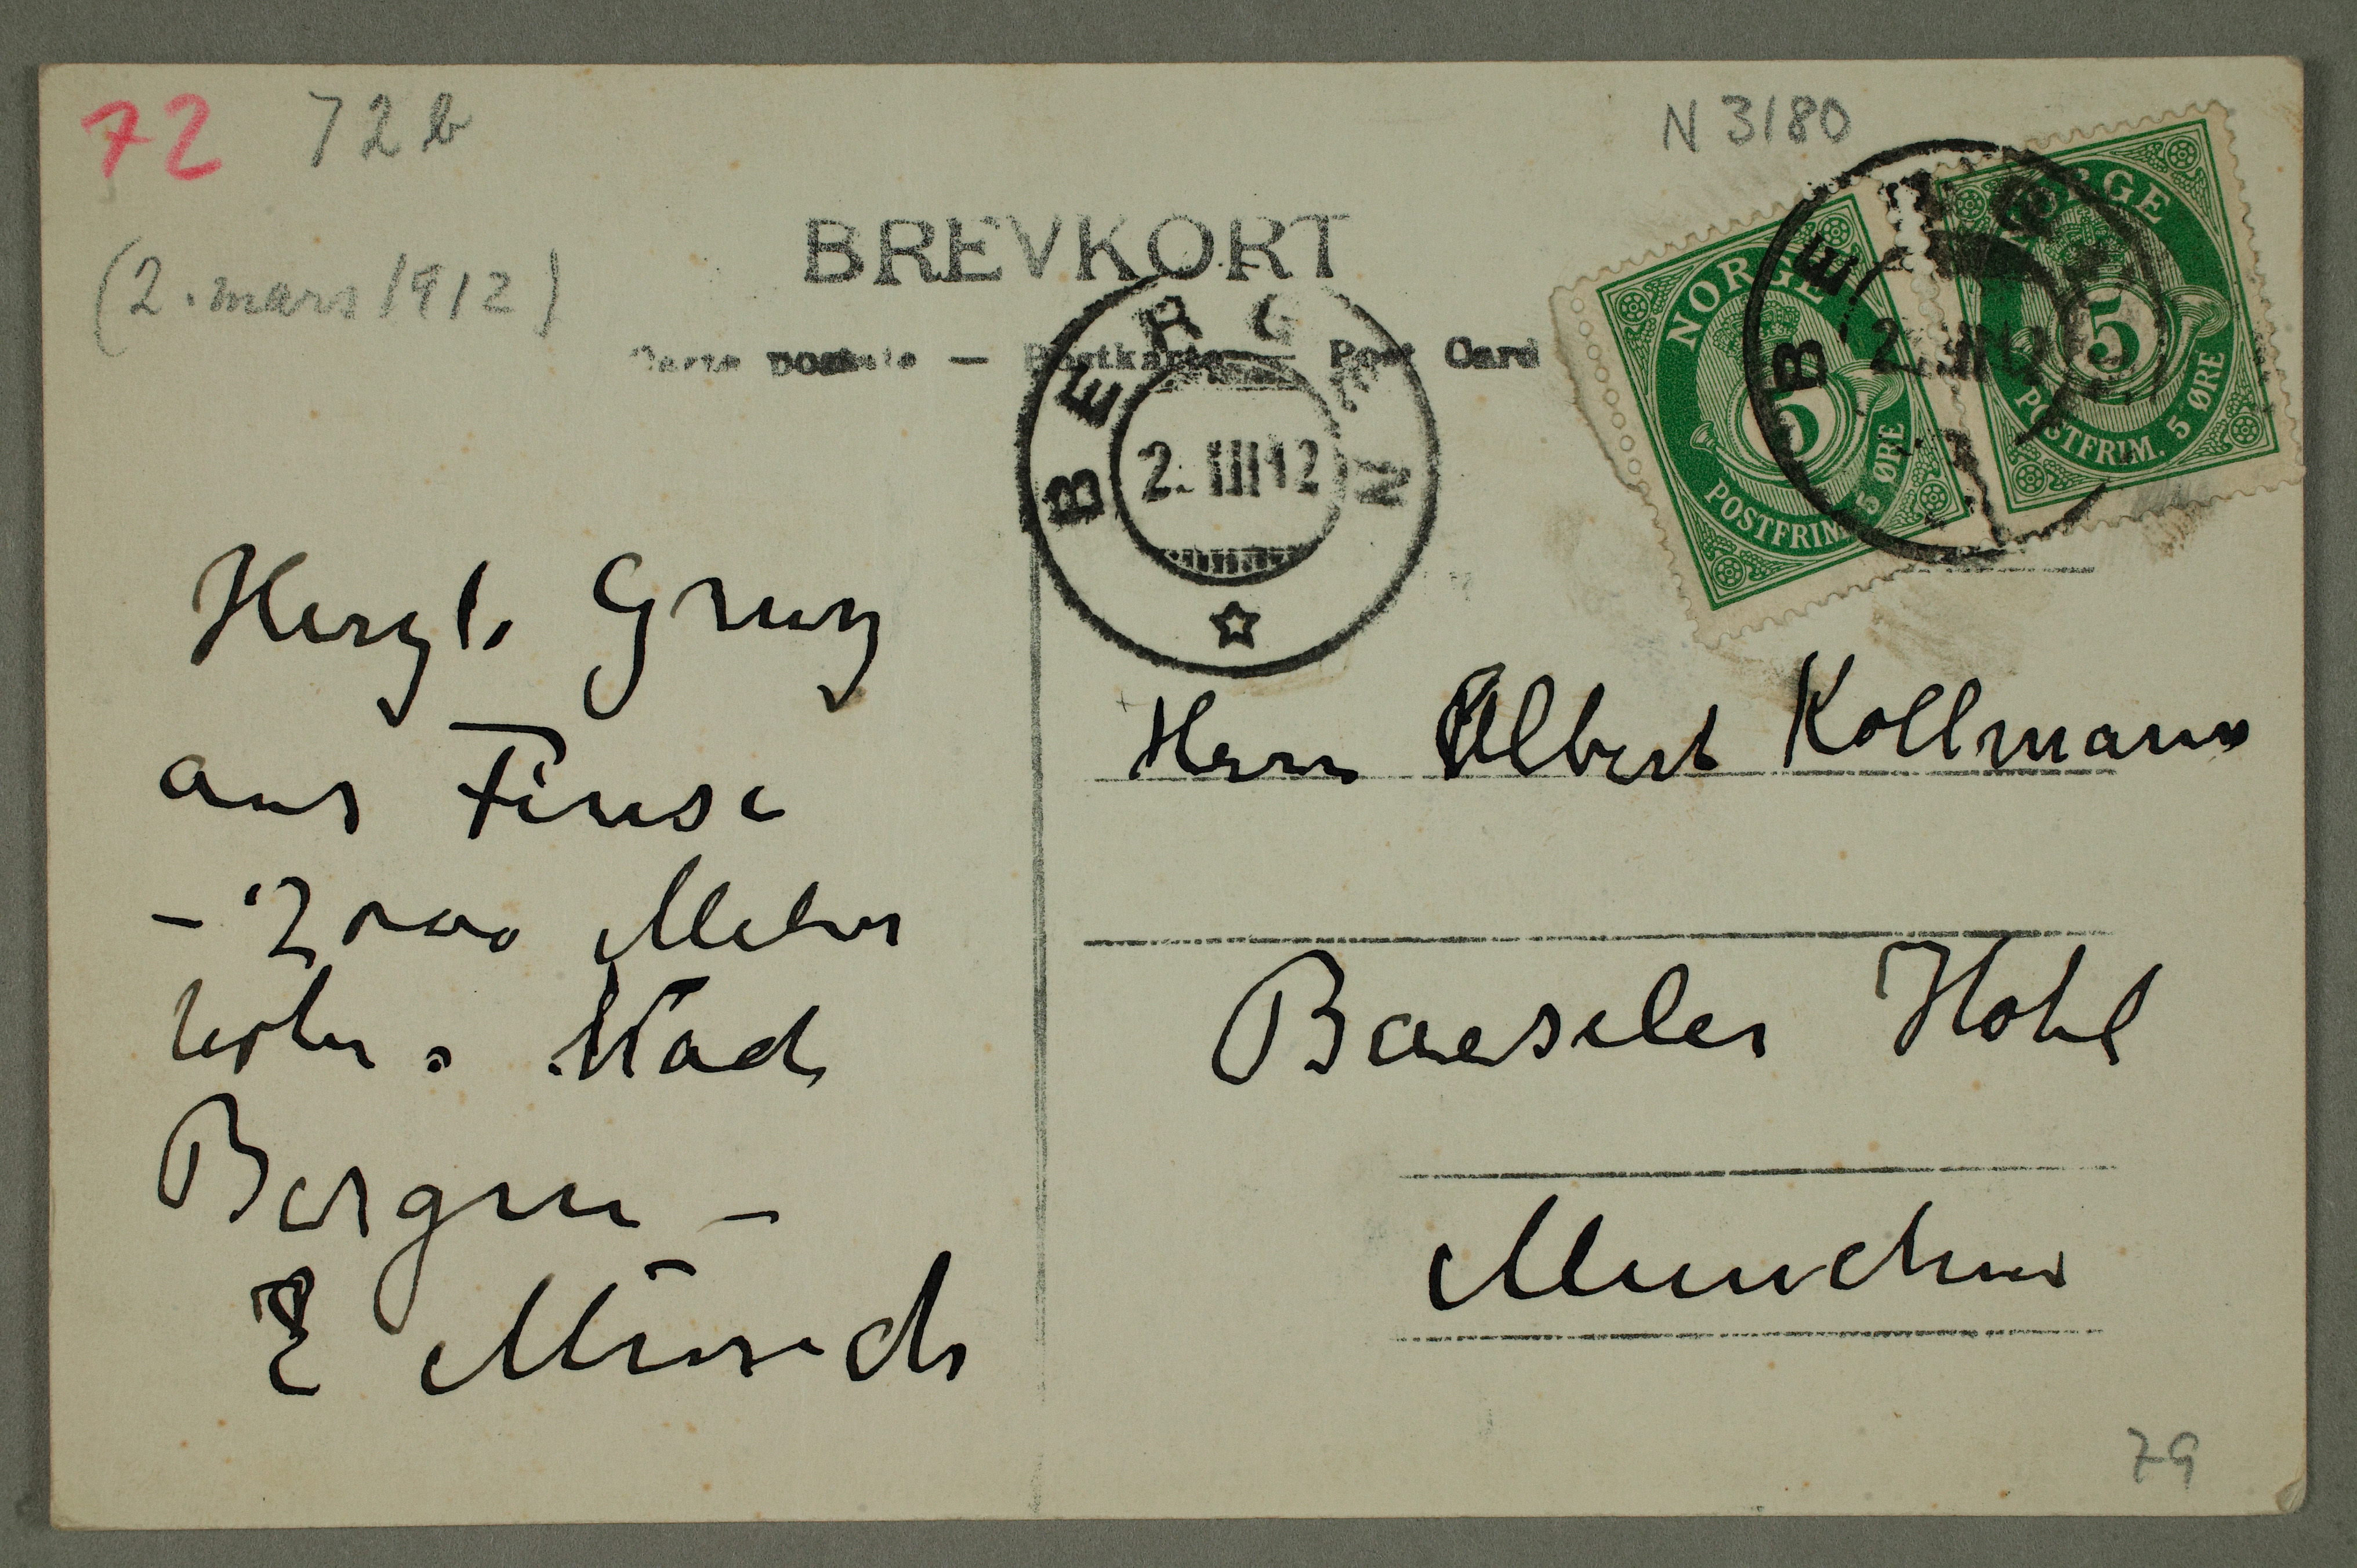 72 72b
N 3180
(2. mars 1912)
BREVKORT
Carte postale — Postkarte — Post Card
BERGEN
2. III 12
NORGE
5
POSTFRIM. 5 ØRE
NORGE
5
POSTFRIM. 5 ØRE
BERGEN
2. III 12
Herzl. Grusz
aus Finse
- 2000 Meter
höher. Nach
Bergen -
E Munch
Herrn Albert Kollmann
Baeseler Hotel
Munchen
79